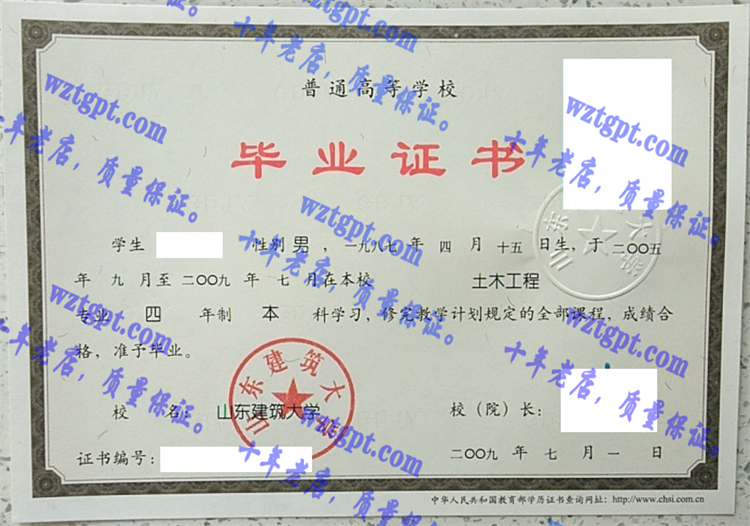 普通高等学校
毕业证书
学生 性别 男 ，一九八七 年 四 月 十五 日生，于 二〇〇五
年 九 月至 二〇〇九 年 七 月在本校 土木工程
专业 四 年制 本 科学习，修完教学计划规定的全部课程，成绩合
格，准予毕业。
校 名： 山东建筑大学
山东建筑大学
校（院）长：
证书编号：
二〇〇九 年 七 月 一 日
中华人民共和国教育部学历证书查询网址：http://www.chsi.com.cn
wztgpt.com
十年老店，质量保证。
wztgpt.com
十年老店，质量保证。
wztgpt.com
十年老店，质量保证。
wztgpt.com
十年老店，质量保证。
wztgpt.com
十年老店，质量保证。
wztgpt.com
十年老店，质量保证。
wztgpt.com
十年老店，质量保证。